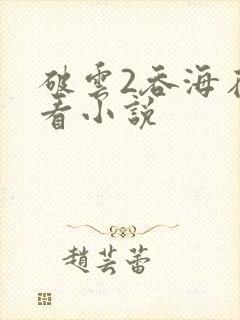 破雲2吞海在
看小說
趙芸蕾